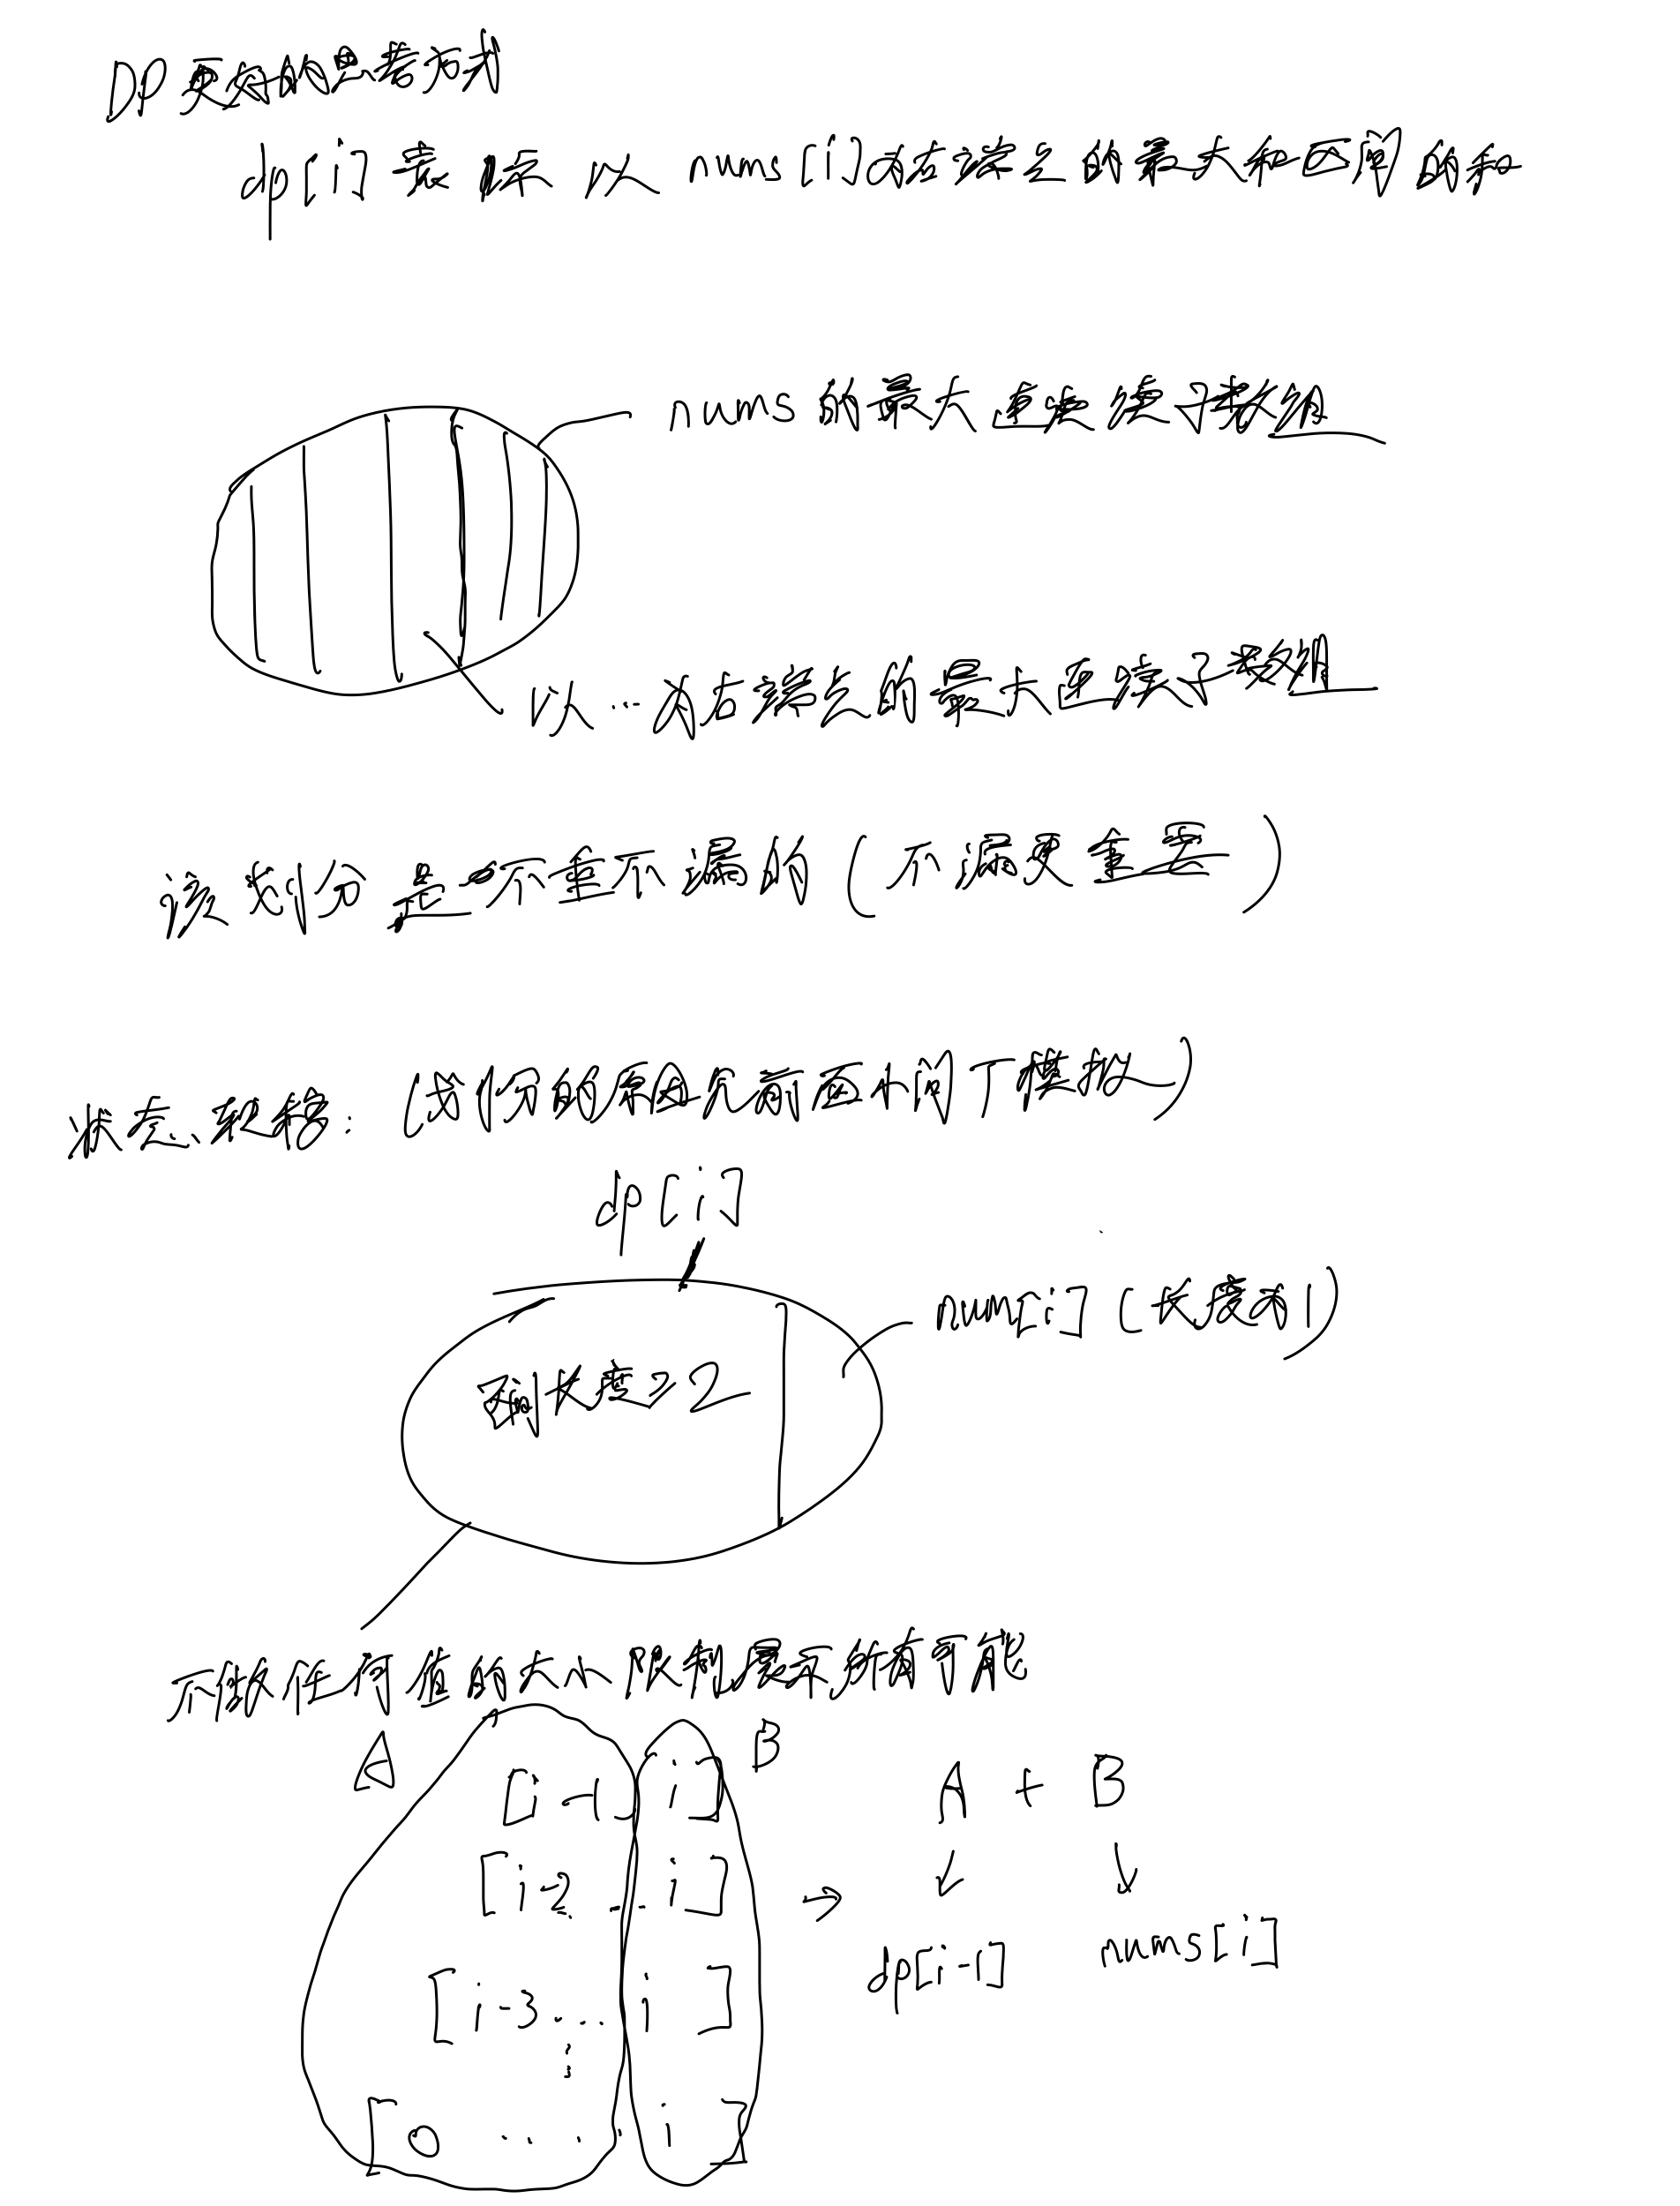 DP更好的思考方式
dp[i]表示以nums[i]为右端点的最大和区间的和
nums的最大连续子数组
以…为右端点的最大连续子数组
该划分是不重不漏的(不漏更重要)
状态转移:(划分的原因见前面小问下模拟)
dp[i]
nums[i](长度为1)
长度≥2
不做任何值的大小限制展示所有可能
A
B
[i-1 i]
A + B
[i-2 ... i]
→
[i-3 ... i]
dp[i-1] nums[i]
[0 .... i]